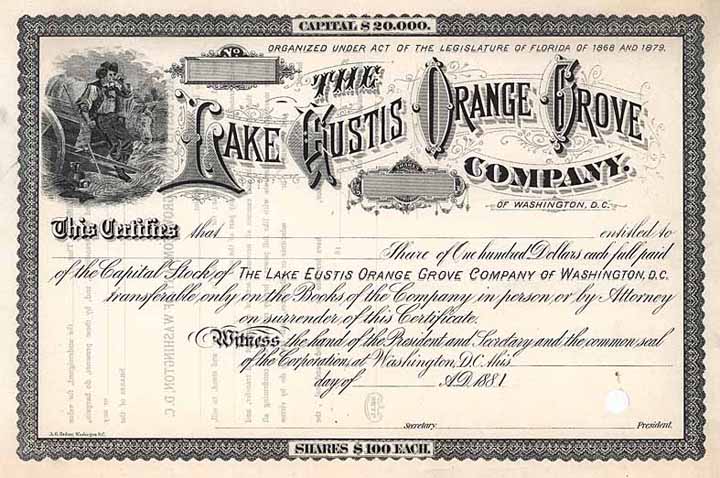 CAPITAL $20.000.
ORGANIZED UNDER ACT OF THE LEGISLATURE OF FLORIDA OF 1868 AND 1879.
No.
THE
LAKE EUSTIS ORANGE GROVE
COMPANY.
OF WASHINGTON, D.C.
This Certifies that entitled to
Share of One hundred Dollars each full paid
of the Capital Stock of THE LAKE EUSTIS ORANGE GROVE COMPANY OF WASHINGTON, D.C.
transferable only on the Books of the Company in person or by Attorney
on surrender of this Certificate.
Witness the hand of the President and Secretary and the common seal
of the Corporation, at Washington, D.C. this
day of A.D. 1881
Secretary. President.
SHARES $100 EACH.